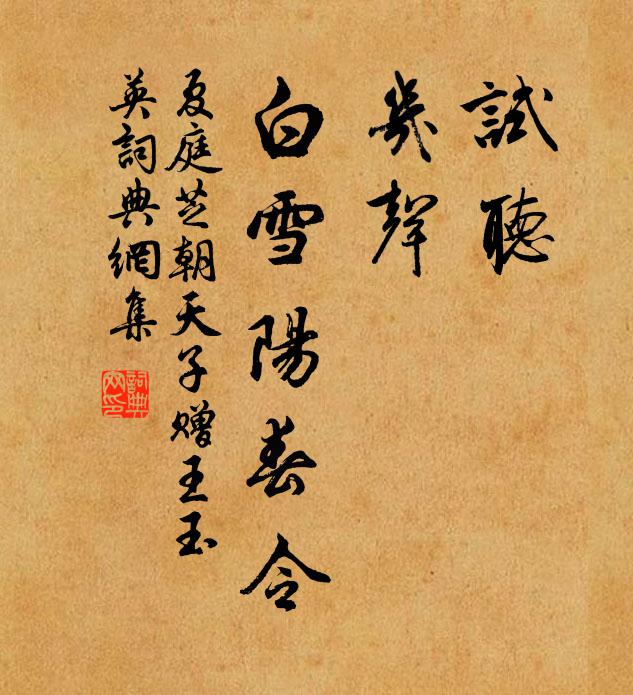 試聽
幾聲
白雪陽春令
夏庭芝朝天子贈王玉
英詞典網集
詞典网印